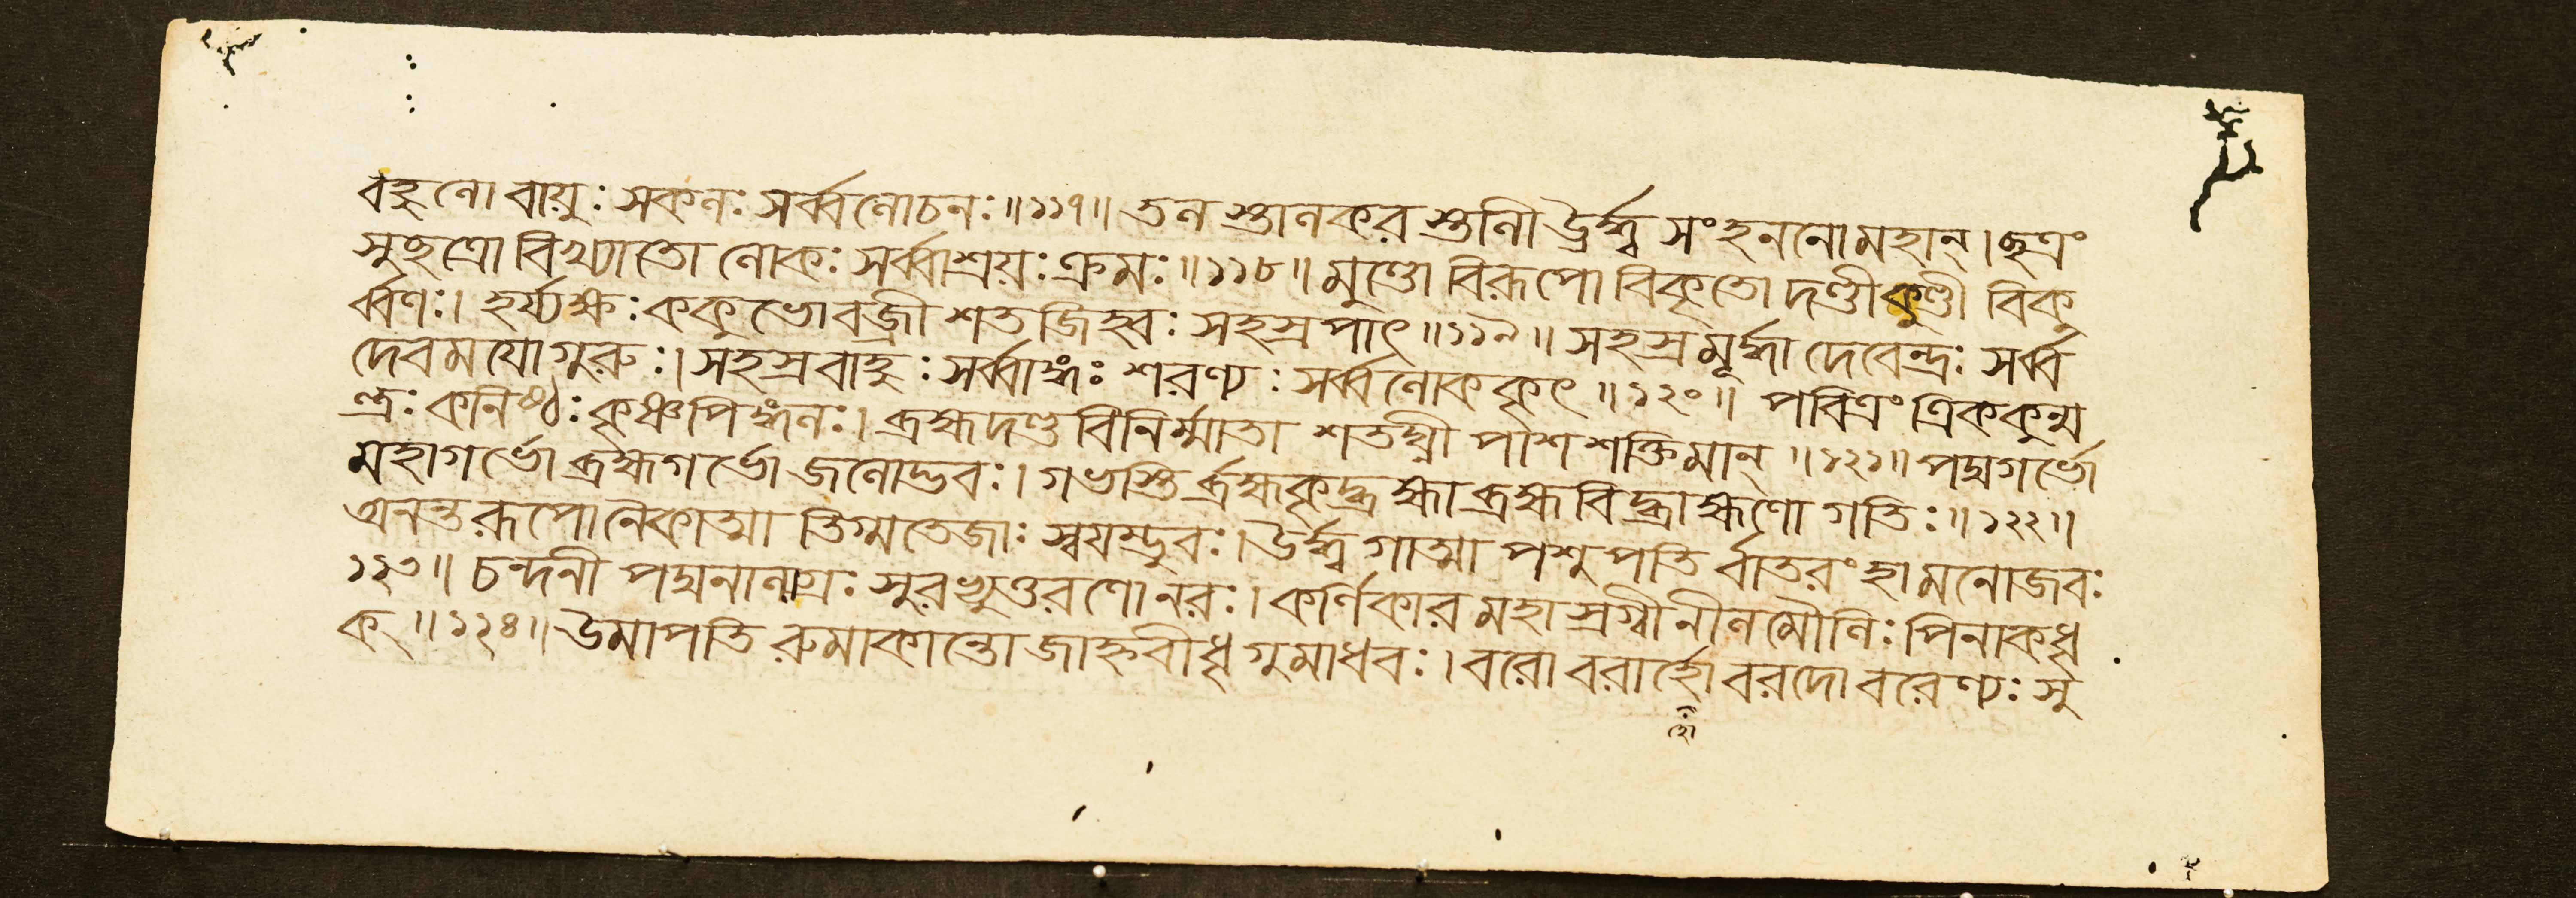 বহুলো বায়ুঃ সকলঃ সর্ব্বলোচনঃ॥১১৭॥ তল স্তালকর স্তলিী দ্রূর্দ্ধ্ব সংহননো মহান্।ছত্রং
সুছত্রো বিখ্যাতো লোকঃ সর্ব্বাশ্রয়ঃ ক্রমঃ॥১১৮॥ মুণ্ডো বিরূপো বিকৃতো দণ্ডী কুণ্ডী বিকু
র্ব্বণঃ। হর্য্যক্ষঃ ককুভো বজ্রী শত জিহ্বঃ সহস্র পাৎ॥১১৯॥ সহস্র মূর্দ্ধা দেবেন্দ্রঃ সর্ব্ব
দেবময়ো গুরুঃ। সহস্রবাহুঃ সর্ব্বাঙ্গঃ শরণ্যঃ সর্ব্বলোককৃৎ॥১২০॥ পবিত্রং ত্রিককুন্ম
ন্ত্রঃ কনিষ্ঠঃ কৃষ্ণপিঙ্গলঃ। ব্রহ্মদণ্ড বিনির্ম্মাতা শতঘ্নী পাশ শক্তিমান্॥১২১॥ পদ্মগর্ভো
মহাগর্ভো ব্রহ্মগর্ভো জলোদ্ভবঃ। গভস্তি র্ব্রহ্মকৃদ্ব্রহ্মা ব্রহ্মবিদ্ব্রাহ্মণো গতিঃ॥১২২॥
অনন্তরূপো নৈকাত্মা তিগ্মতেজাঃ স্বয়ম্ভুবঃ। ঊর্দ্ধ্ব গাত্মা পশুপতি র্বাতরংহা মনোজবঃ
১২৩॥ চন্দনী পদ্মনালাগ্রঃ সুরভ্যুত্তরণো নরঃ। কর্ণিকার মহাস্রগ্বী নীলমৌলিঃ পিনাকধৃ
ক্॥১২৪॥ উমাপতি রুমাকান্তো জাহ্নবীধৃগুমাধবঃ। বরো বরার্হো বরদো বরেণ্যঃ সু
র্হো